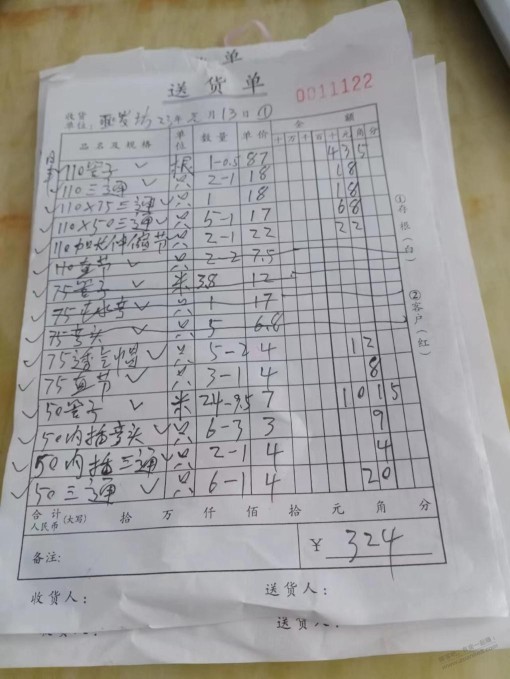 单
送货单
0011122
收货单位: 23年 月13日①
品名及规格 单位 数量 单价 金额
十万千百十元角分
110管子 ✓ 根 1-0.5 87 435
110三通 ✓ 只 2-1 18 18
110×75三通 ✓ 只 1 18 18
110×50三通 ✓ 只 5-1 17 68
110加长伸缩节 只 2-1 22 22
110直节 ✓ 只 2-2 7.5
75管子 ✓ 米 3.8 12
75 弯 ✓ 只 1 17
75弯头 ✓ 只 5 6.8
75透气帽 ✓ 只 5-2 4 12
75直节 ✓ 只 3-1 4 8
50管子 ✓ 米 24-9.5 7 1015
50内插弯头 ✓ 只 6-3 3 9
50内插三通 ✓ 只 2-1 4 4
50三通 ✓ 只 6-1 4 20
合计人民币(大写) 拾 万 仟 佰 拾 元 角 分
备注: ¥ 324
收货人: 送货人:
送货人:
①存根(白)
②客户(红)